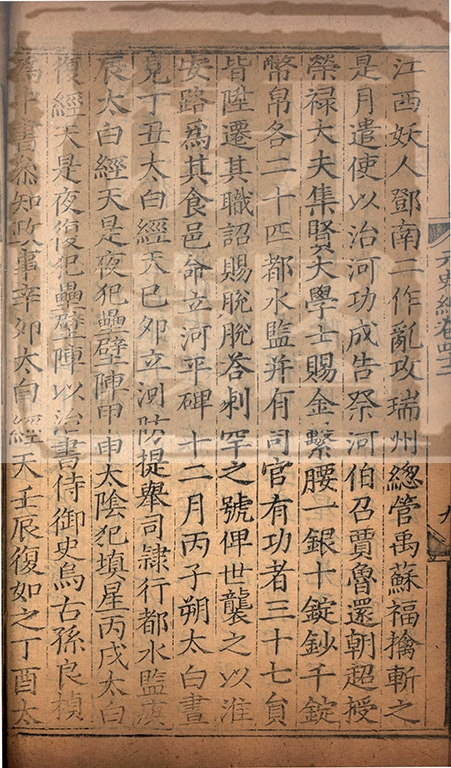 元史紀卷四十二
九
江西妖人鄧南二作亂攻瑞州總管禹蘇福擒斬之
是月遣使以治河功成告祭河伯召賈魯還朝超授
榮禄大夫集賢大學士賜金繫腰一銀十錠鈔千錠
幣帛各二十匹都水監并有司官有功者三十七員
皆陞遷其職詔賜脫脫荅剌罕之號俾世襲之以淮
安路爲其食邑命立河平碑十二月丙子朔太白晝
見丁丑太白經天己夘立河防提舉司隷行都水監庚
辰太白經天是夜犯壘壁陣甲申太陰犯塡星丙戌太白
復經天是夜復犯壘壁陣以治書侍御史烏古孫良楨
爲中書參知政事辛夘太白經天壬辰復如之丁酉太